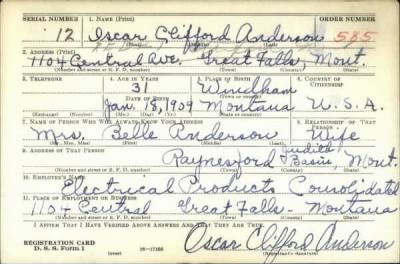 SERIAL NUMBER 1. NAME (Print) ORDER NUMBER
12 Oscar Clifford Anderson 585
(First) (Middle) (Last)
2. ADDRESS (Print)
1104 Central Ave. Great Falls, Mont.
(Number and street or R. F. D. number) (Town) (County) (State)
3. TELEPHONE 4. AGE IN YEARS 5. PLACE OF BIRTH 6. COUNTRY OF CITIZENSHIP
31 Windham
DATE OF BIRTH (Town or county)
Jan. 18, 1909 Montana U.S.A.
(Exchange) (No.) (Mo.) (Day) (Yr.) (State or country)
7. NAME OF PERSON WHO WILL ALWAYS KNOW YOUR ADDRESS 8. RELATIONSHIP OF THAT PERSON
Mrs. Belle Anderson Wife
(Mr., Mrs., Miss) (First) (Middle) (Last)
9. ADDRESS OF THAT PERSON
Raynesford Judith Basin, Mont.
(Number and street or R. F. D. number) (Town) (County) (State)
10. EMPLOYER'S NAME
Electrical Products Consolidated
11. PLACE OF EMPLOYMENT OR BUSINESS
1104 Central Great Falls - Montana
(Number and street or R. F. D. number) (Town) (County) (State)
I AFFIRM THAT I HAVE VERIFIED ABOVE ANSWERS AND THAT THEY ARE TRUE.
REGISTRATION CARD
D. S. S. Form 1 16-17105 Oscar Clifford Anderson